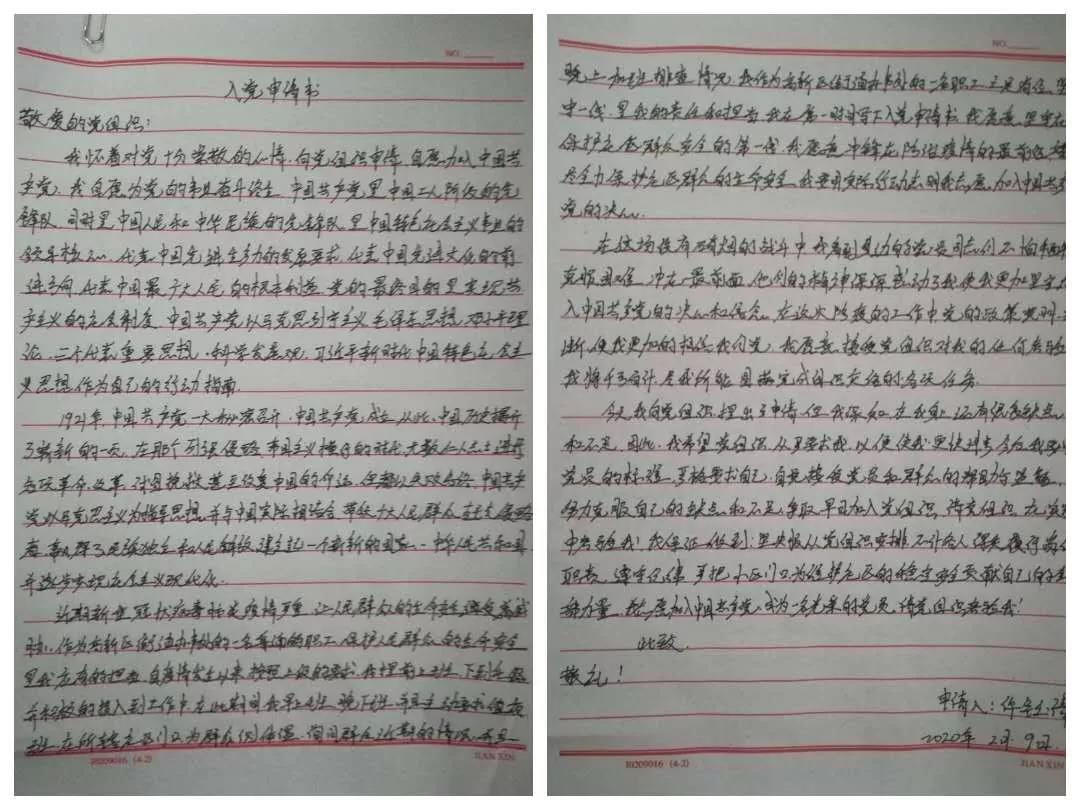 NO.
入党申请书
敬爱的党组织:
我怀着对党十分崇敬的心情,向党组织申请,自愿加入中国共
产党,我自愿为党的事业奋斗终生,中国共产党是中国工人阶级的先
锋队,同时是中国人民和中华民族的先锋队,是中国特色社会主义事业的
领导核心,代表中国先进生产力的发展要求,代表中国先进文化的前
进方向,代表中国最广大人民的根本利益,党的最终目的是实现共
产主义的社会制度,中国共产党以马克思列宁主义,毛泽东思想,邓小平理
论,三个代表重要思想,科学发展观,习近平新时代中国特色社会主
义思想,作为自己的行动指南。
1921年,中国共产党一大秘密召开,中国共产党成立,从此,中国历史揭开
了崭新的一页。在那个列强侵略,帝国主义横行的时代,无数仁人志士进行
各项革命,改革,
党以马克思主义为指导思想,并与中国实际相结合,带领广大人民群众
取得了民族独立和人民解放,建立起一个崭新的国家,中华人民共和国,
并逐步实现社会主义现代化。
近期新型冠状病毒性炎疫情严重,让人民群众的生命安全遭受着威
胁,作为高新区街道办事处的一名普通的职工,保护人民群众的生命安全
是我应有的担当,自疫情发生以来,按照上级的要求,我提前上班,下到社区,
并积极的投入到工作中,在此期间我早上班,晚下班,并且主动要求值夜
班,在所辖社区门口为群众测体温,询问群众近期的情况,并且
R0209016 (4-2)
JIAN XIN
NO.
晚上加班排查情况,我作为高新区街道办事处的一名职工,立足岗位,坚
守一线,是我的责任和担当,我在第一时间写下入党申请书,我愿意坚守在
保护社区群众安全的第一线,我愿意冲锋在防治疫情的最前沿,
尽全力保护社区群众的生命安全,我要用实际行动表明我志愿加入中国共产
党的决心。
在这场没有硝烟的战斗中,我看到身边的党员同志们不怕
克服困难,冲在最前面,他们的精神深深感动了我,使我更加坚定
入中国共产党的决心和信念,在这次防疫的工作中党的政策
断,使我更加的相信我们党,我愿意接受党组织对我的任何考验
我将千方百计,尽我所能,圆满完成组织交给的各项任务。
今天我向党组织提出了申请,但我深知,在我身上还有很多缺点
和不足,因此,我希望党组织从严要求我,以便使我更快进步,今后我要以
党员的标准,严格要求自己,自觉接受党员和群众的帮助与监督,
努力克服自己的缺点和不足,争取早日加入党组织,请党组织在实践
中考验我!我保证做到:坚决服从党组织安排,不计个人得失,履行
职责,遵守纪律,严把小区门口,为维护社区的稳定安全贡献自己的
力量,我志愿加入中国共产党,成为一名光荣的党员,请党组织考验我!
此致
敬礼!
申请人:
2020年2月9日
R0209016 (4-2)
JIAN XIN